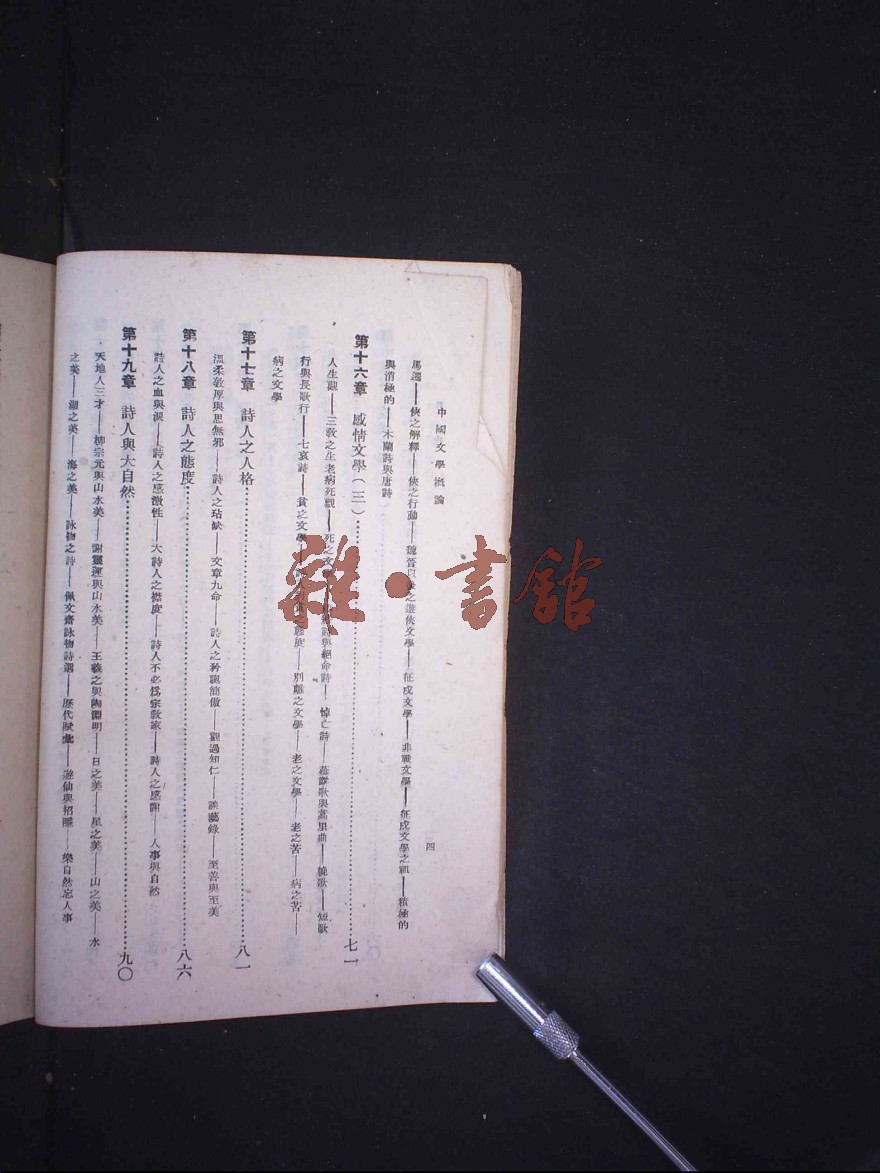 中國文學概論
四
馬遷——俠之解釋——俠之行動——魏晉以之遊俠文學——征戍文學——非戰文學——征戍文學之——積極的
與消極的——木蘭詩與唐詩
第十六章 感情文學(三)……七一
人生觀——三教之生老病死觀——死之文與絕命詩——悼亡詩——薤露歌與蒿里曲——輓歌——短歌
行與長歌行——七哀詩——貧之文學之態度——別離之文學——老之文學——老之苦——病之苦——
病之文學
第十七章 詩人之人格……八一
溫柔敦厚與思無邪——詩人之玷缺——文章九命——詩人之矜簡傲——觀過知仁——談藝錄——至善與至美
第十八章 詩人之態度……八六
詩人之血與淚——詩人之感激性——大詩人之襟度——詩人不必為宗教家——詩人之感謝——人事與自然
第十九章 詩人與大自然……九〇
天地人三才——柳宗元與山水美——謝靈運與山水美——王羲之與陶淵明——日之美——星之美——山之美——水
之美——湖之美——海之美——詠物之詩——佩文齋詠物詩選——歷代賦彙——遊仙與招隱——樂自然忘人事
雜·書館